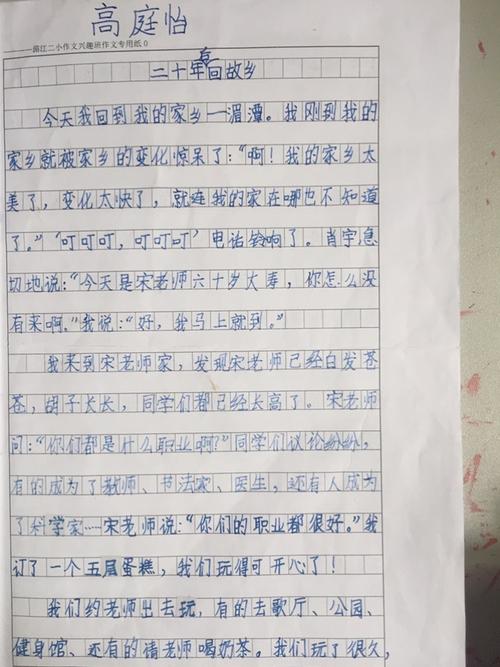 高庭怡
湄江二小作文兴趣班作文专用纸0
二十年后回故乡
今天我回到我的家乡—湄潭。我刚到我的
家乡就被家乡的变化惊呆了：“啊！我的家乡太
美了，变化太快了，就连我的家在哪也不知道
了。”“叮叮叮，叮叮叮”电话铃响了。肖宇急
切地说：“今天是宋老师六十岁大寿，你怎么没
有来啊。”我说：“好，我马上就到。”
我来到宋老师家，发现宋老师已经白发苍
苍，胡子长长，同学们都已经长高了。宋老师
问：“你们都是什么职业啊？”同学们议论纷纷，
有的成为了教师、书法家、医生，还有人成为
了科学家……宋老师说：“你们的职业都很好。”我
订了一个五层蛋糕，我们玩得可开心了！
我们约老师出去玩，有的去歌厅、公园、
健身馆、还有的请老师喝奶茶。我们玩了很久，